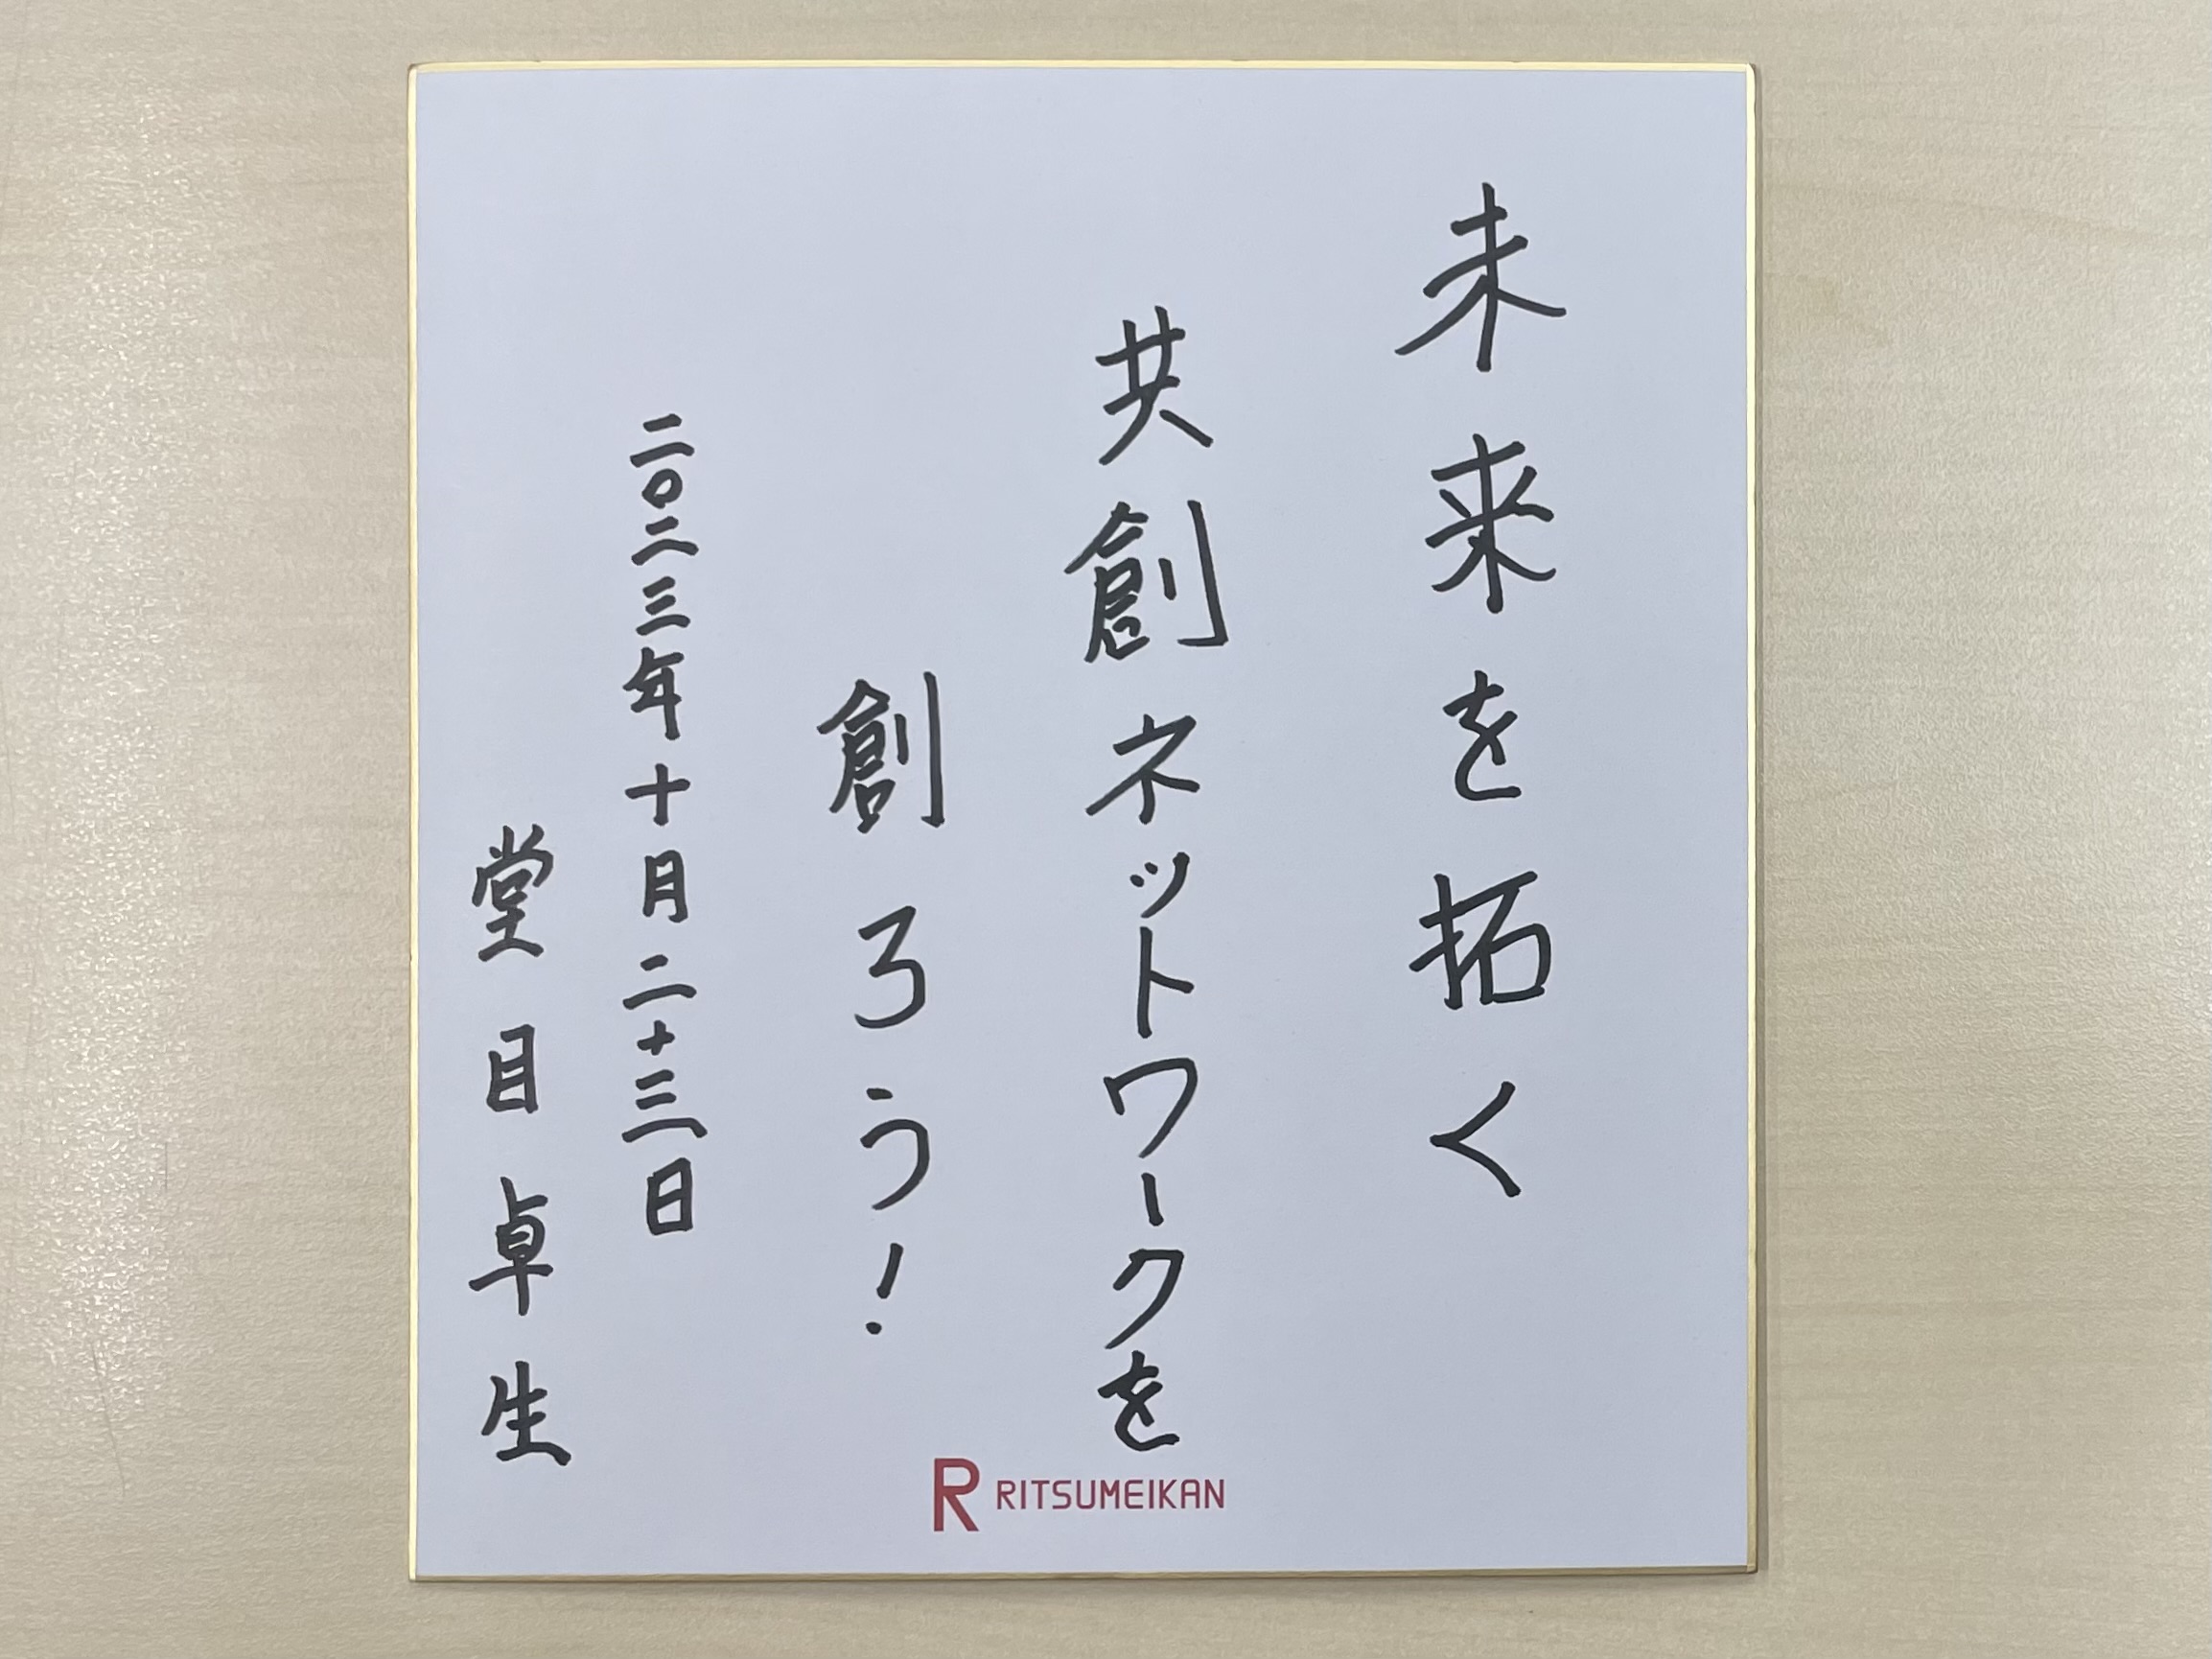 未来を拓く
共創ネットワークを
創ろう！
二〇二三年十月二十三日
堂目卓生
R RITSUMEIKAN